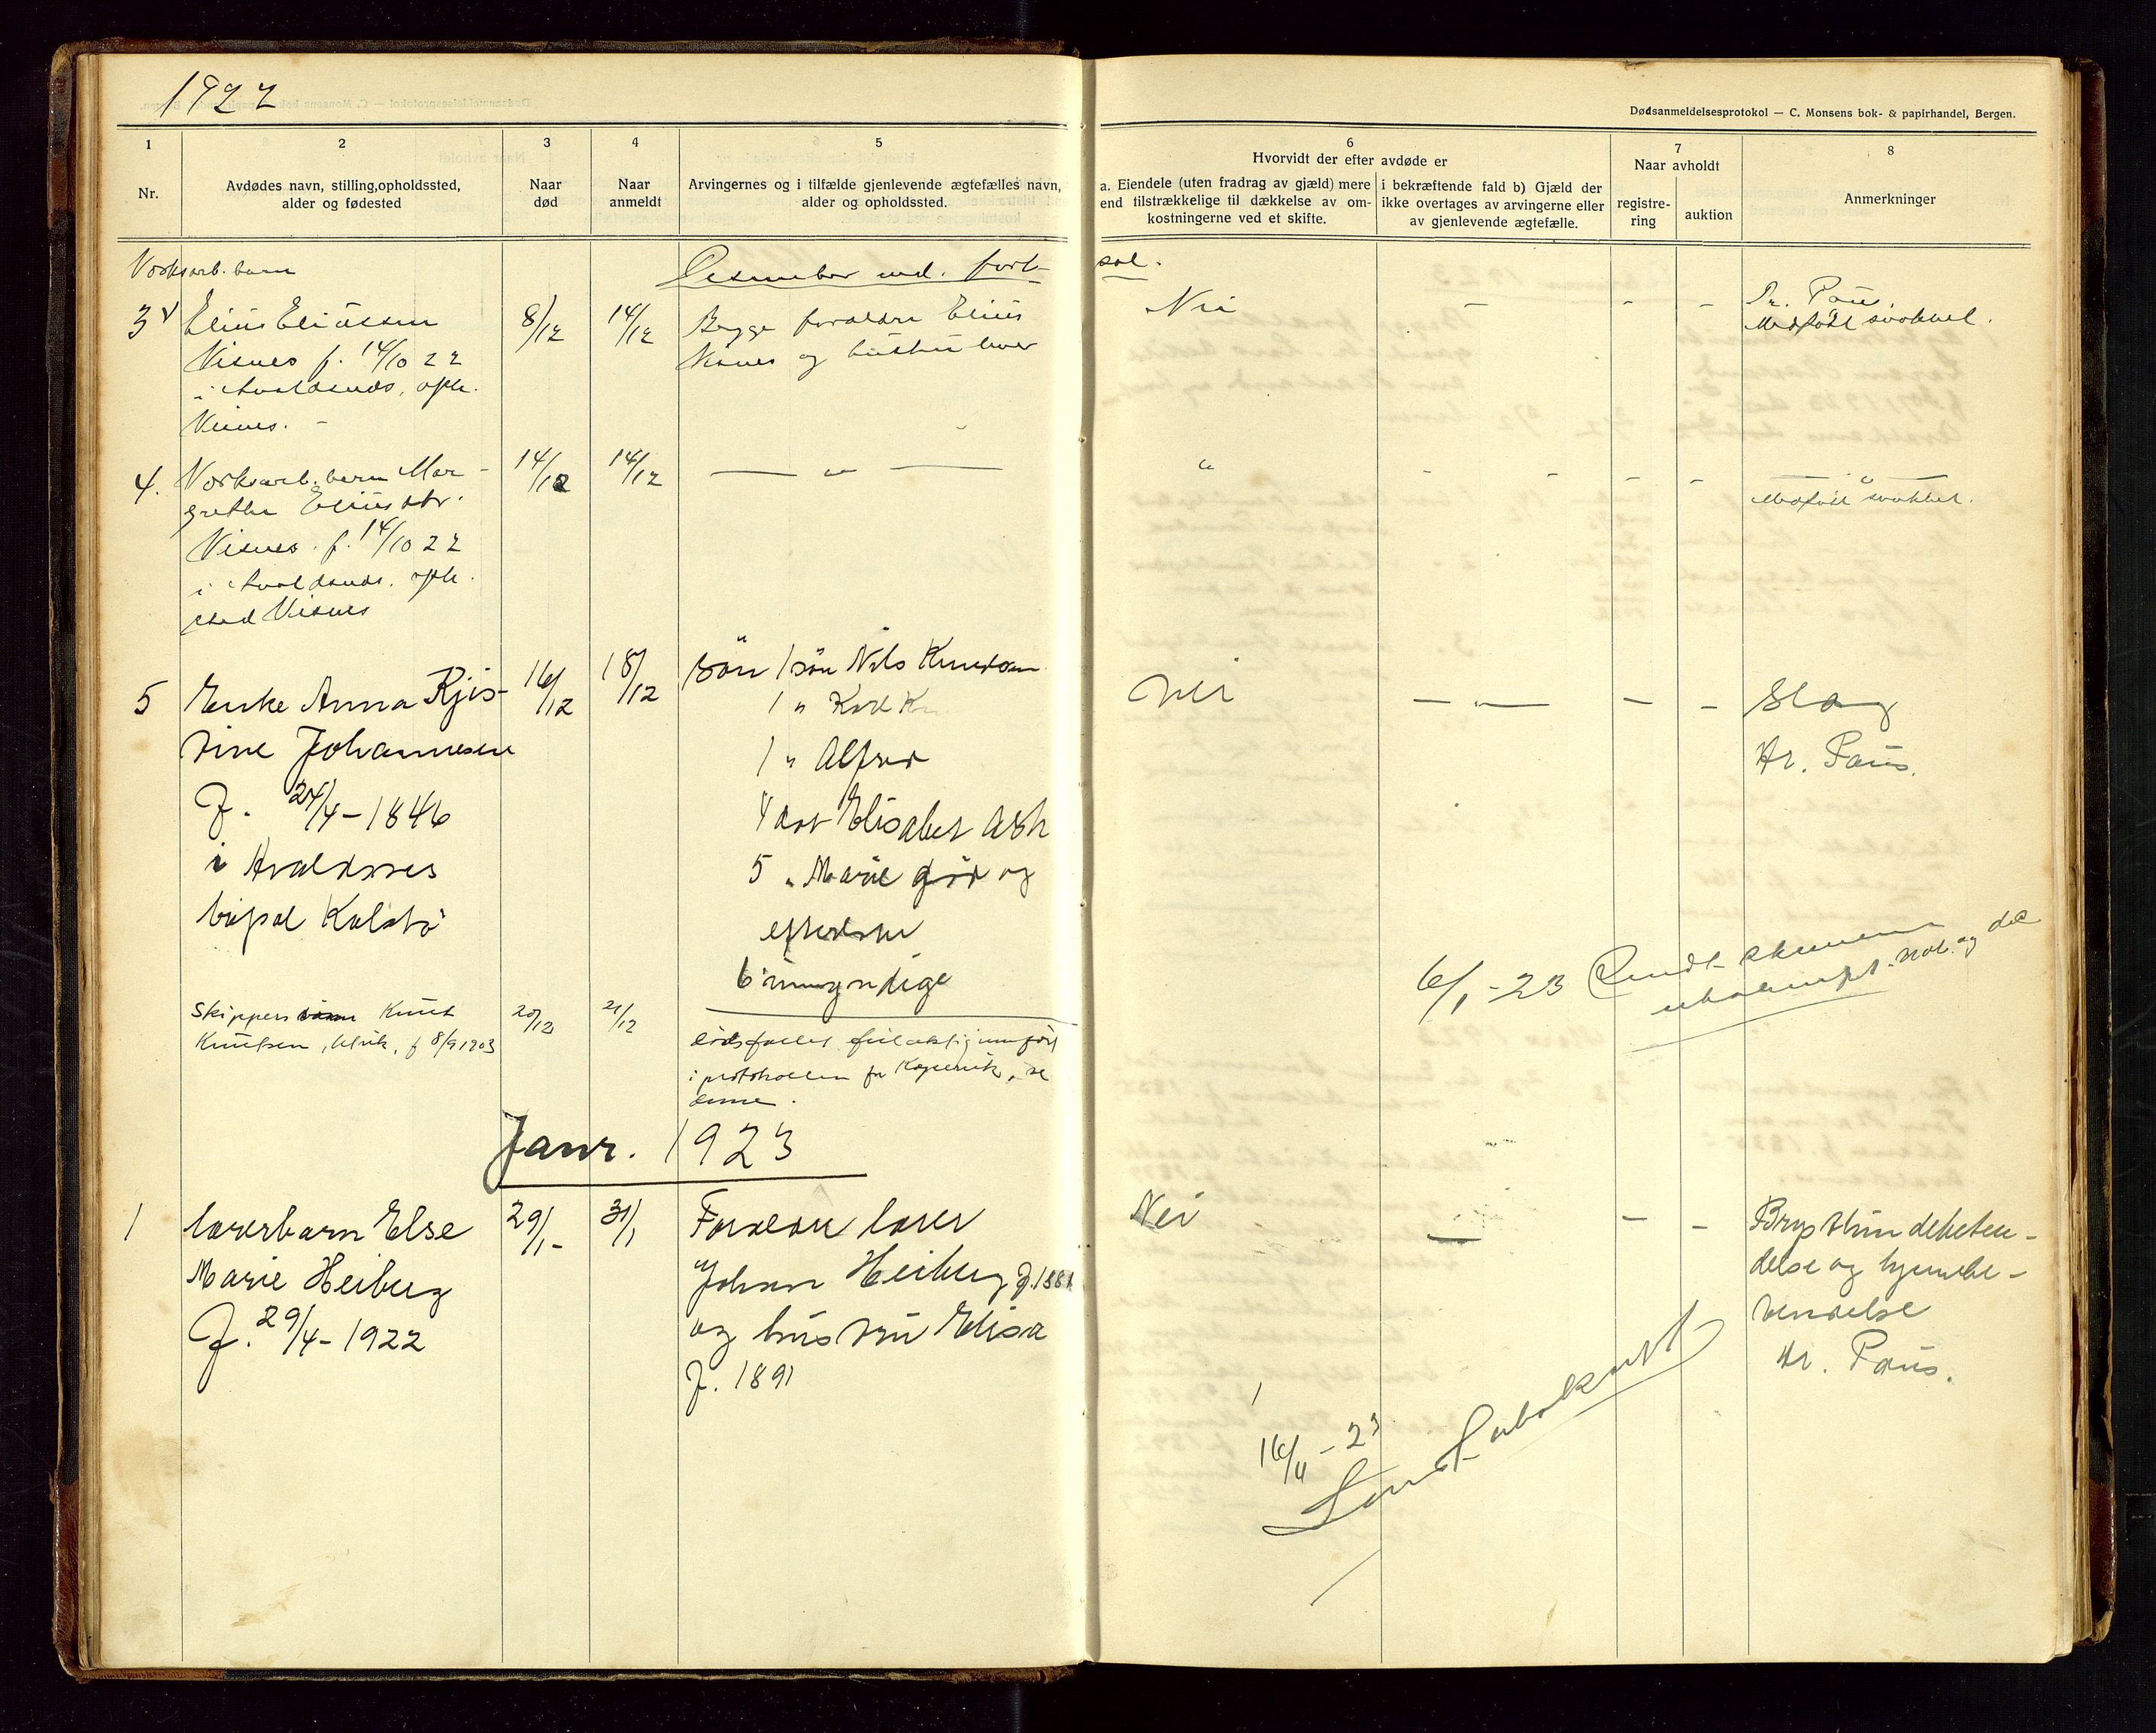 1922
Dødsanmeldelsesprotokol — C. Monsens bok- & papirhandel, Bergen.
1
2
3
4
5
6
7
8
Nr.
Avdødes navn, stilling,opholdssted,
alder og fødested
Naar
død
Naar
anmeldt
Arvingernes og i tilfælde gjenlevende ægtefælles navn,
alder og opholdssted.
Hvorvidt der efter avdøde er
a. Eiendele (uten fradrag av gjæld) mere
end tilstrækkelige til dækkelse av om-
kostningerne ved et skifte.
i bekræftende fald b) Gjæld der
ikke overtages av arvingerne eller
av gjenlevende ægtefælle.
Naar avholdt
registre-
ring
auktion
Anmerkninger
Desember md. fort-
sat.
Verksarb. barn
3
Elius Eliassen
Visnes f. 14/10 22
i Avaldsnes, oph.
Visnes.
8/12
14/12
Begge foraldre Elius
Visnes og hustru lever
Nei
- - -
Dr. Paus.
Medfödt svakhet.
4.
Verksarb. barn Mar-
grethe Eliusdtr.
Visnes. f. 14/10 22
i Avaldsnes. oph.
sted Visnes
14/12
14/12
— " —
"
- - - -
— " —
Medfödt svakhet.
5
Enke Anna Kjis-
tine Johannesen
F. 24/4 - 1846
i Avaldsnes
bopel Kolstö
16/12
18/12
Sön Nils Knudsen
1 " Karl
1 " Alfred
4 dat Elisabet
5 " Marie død og
efterlatte
6 umyndige
Nei
— " — - -
Slag
Dr. Paus.
6/1 - 23 Sendt skemaer
og
Skippers Knut
Knutsen, Utvik, f 8/9 1903
20/12
21/12
Dödsfallet feilaktig innfört
i protokollen for Kopervik, se
denne.
Janr. 1923
1
Lærerbarn Else
Marie Heiberg
F. 29/4 - 1922
29/1 -
31/1
Foreldre lærer
Johan Heiberg f. 188
og hustru Elisa
f. 1891
Nei
— - -
Brysthindebeten-
delse og hjernebe-
tendelse
Dr. Paus.
16/11 - 23